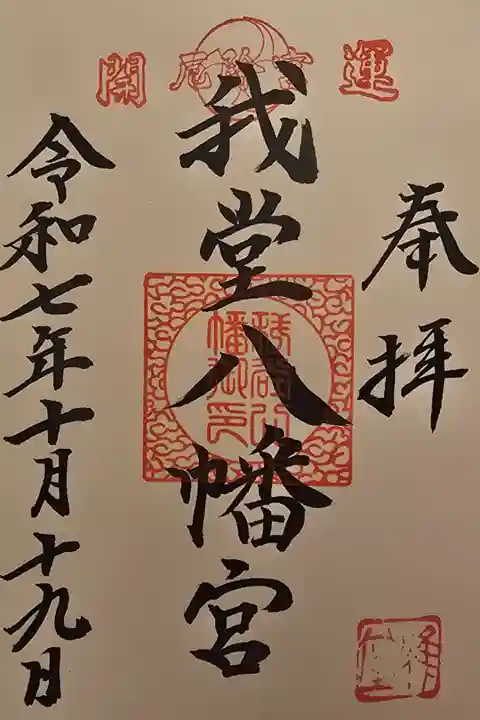 奉拝
運
開
我堂八幡宮
令和七年十月十九日